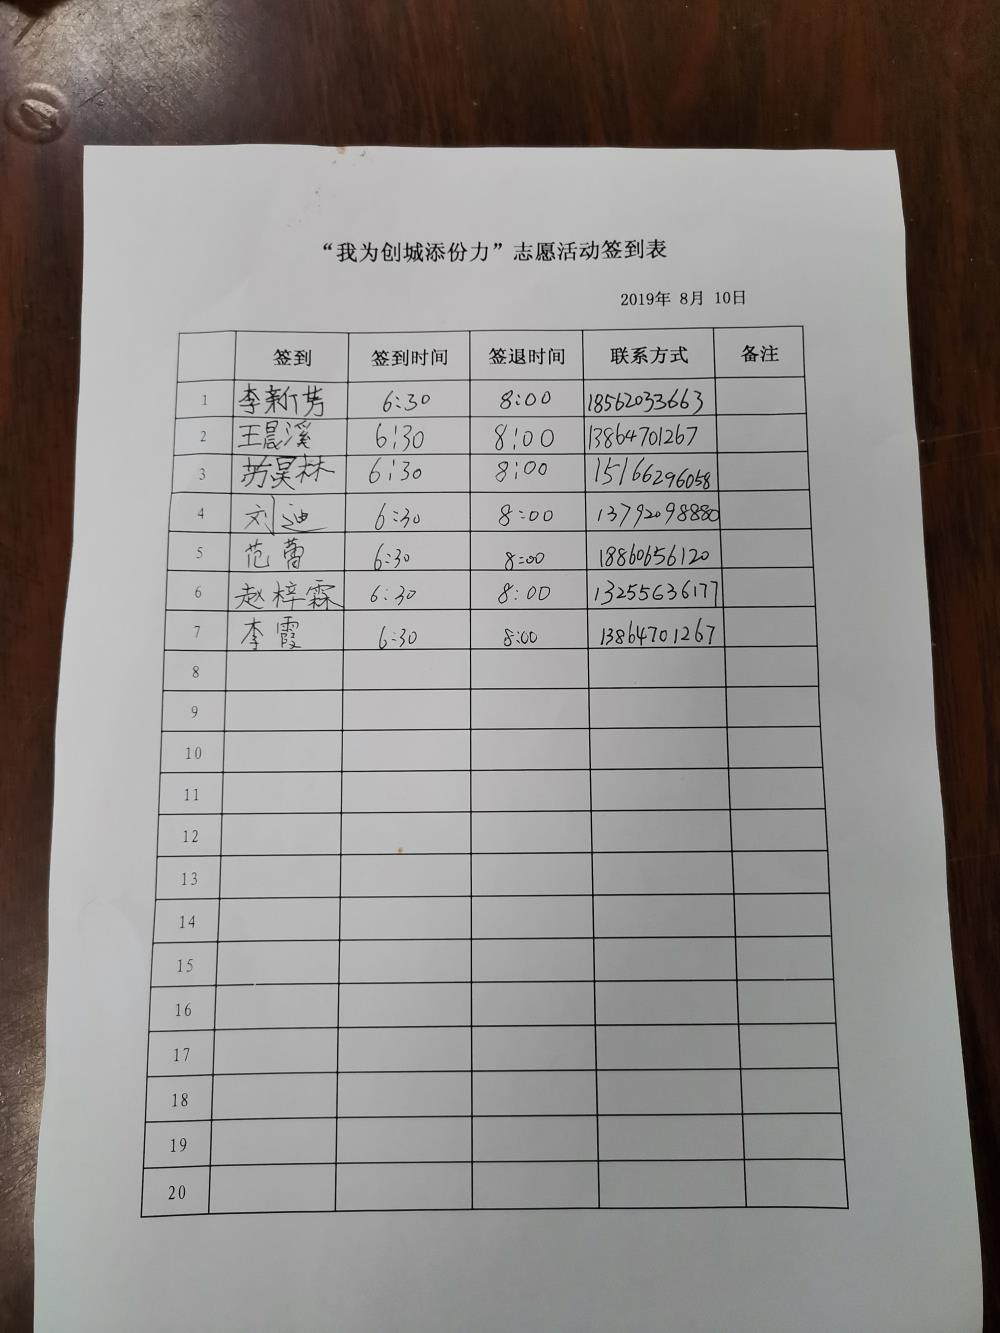 “我为创城添份力”志愿活动签到表
2019年 8月 10日
签到 签到时间 签退时间 联系方式 备注
1 李新芳 6:30 8:00 18562033663
2 王晨溪 6:30 8:00 13864701267
3 苏昊林 6:30 8:00 15166296058
4 刘迪 6:30 8:00 13792098880
5 范蕾 6:30 8:00 18860656120
6 赵梓霖 6:30 8:00 13255636177
7 李霞 6:30 8:00 13864701267
8
9
10
11
12
13
14
15
16
17
18
19
20